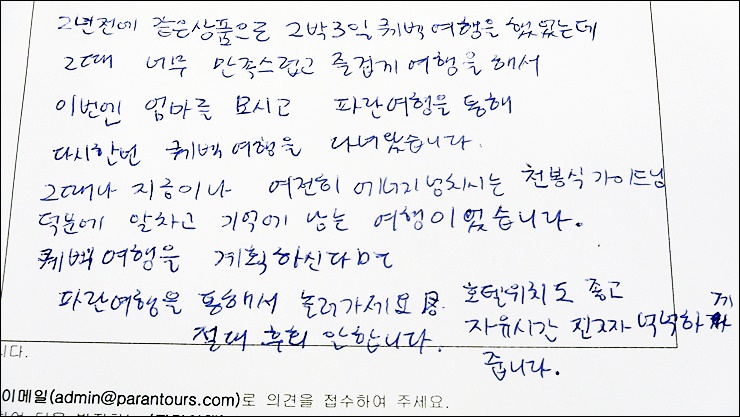 2년전에 같은상품으로 2박3일 퀘벡여행을 했었는데
그때 너무 만족스럽고 즐겁게 여행을 해서
이번엔 엄마를 모시고 파란여행을 통해
다시한번 퀘벡여행을 다녀왔습니다.
그때나 지금이나 여전히 에너지넘치시는 천봉식가이드님
덕분에 알차고 기억에 남는 여행이었습니다.
퀘벡여행을 계획하신다면
파란여행을 통해서 놀러가세요
절대 후회 안합니다.
호텔위치도 좋고
자유시간 진짜 넉넉하게
줍니다.
니다.
이메일(admin@parantours.com)로 의견을 접수하여 주세요.